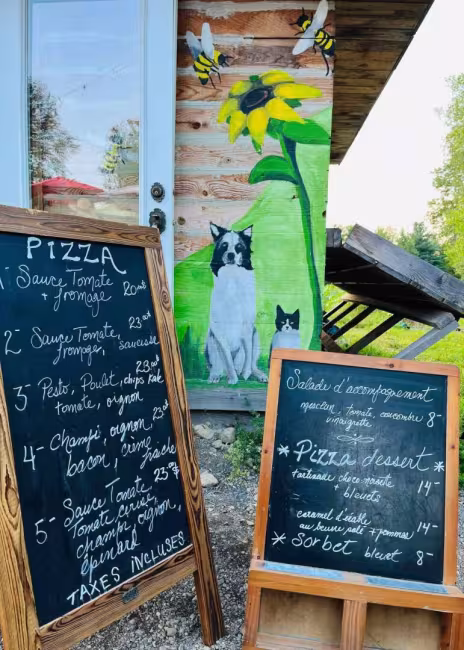 PIZZA
1- Sauce Tomate
+ fromage 20
2- Sauce Tomate, 23
fromage, saucisse
3- Pesto, Poulet, chips kale 23
tomate, oignon
4- Champi, oignon, 23
bacon, crème fraîche
5- Sauce Tomate 23
Tomate cerise,
champi oignon,
épinard
TAXES INCLUSES
Salade d'accompagnement
mesclun, tomate, concombre 8-
vinaigrette
* Pizza dessert *
tartinade choco noisette
+ bleuets 14-
caramel d'érable
au beurre salé + pommes 14-
* Sorbet bleuet 8-